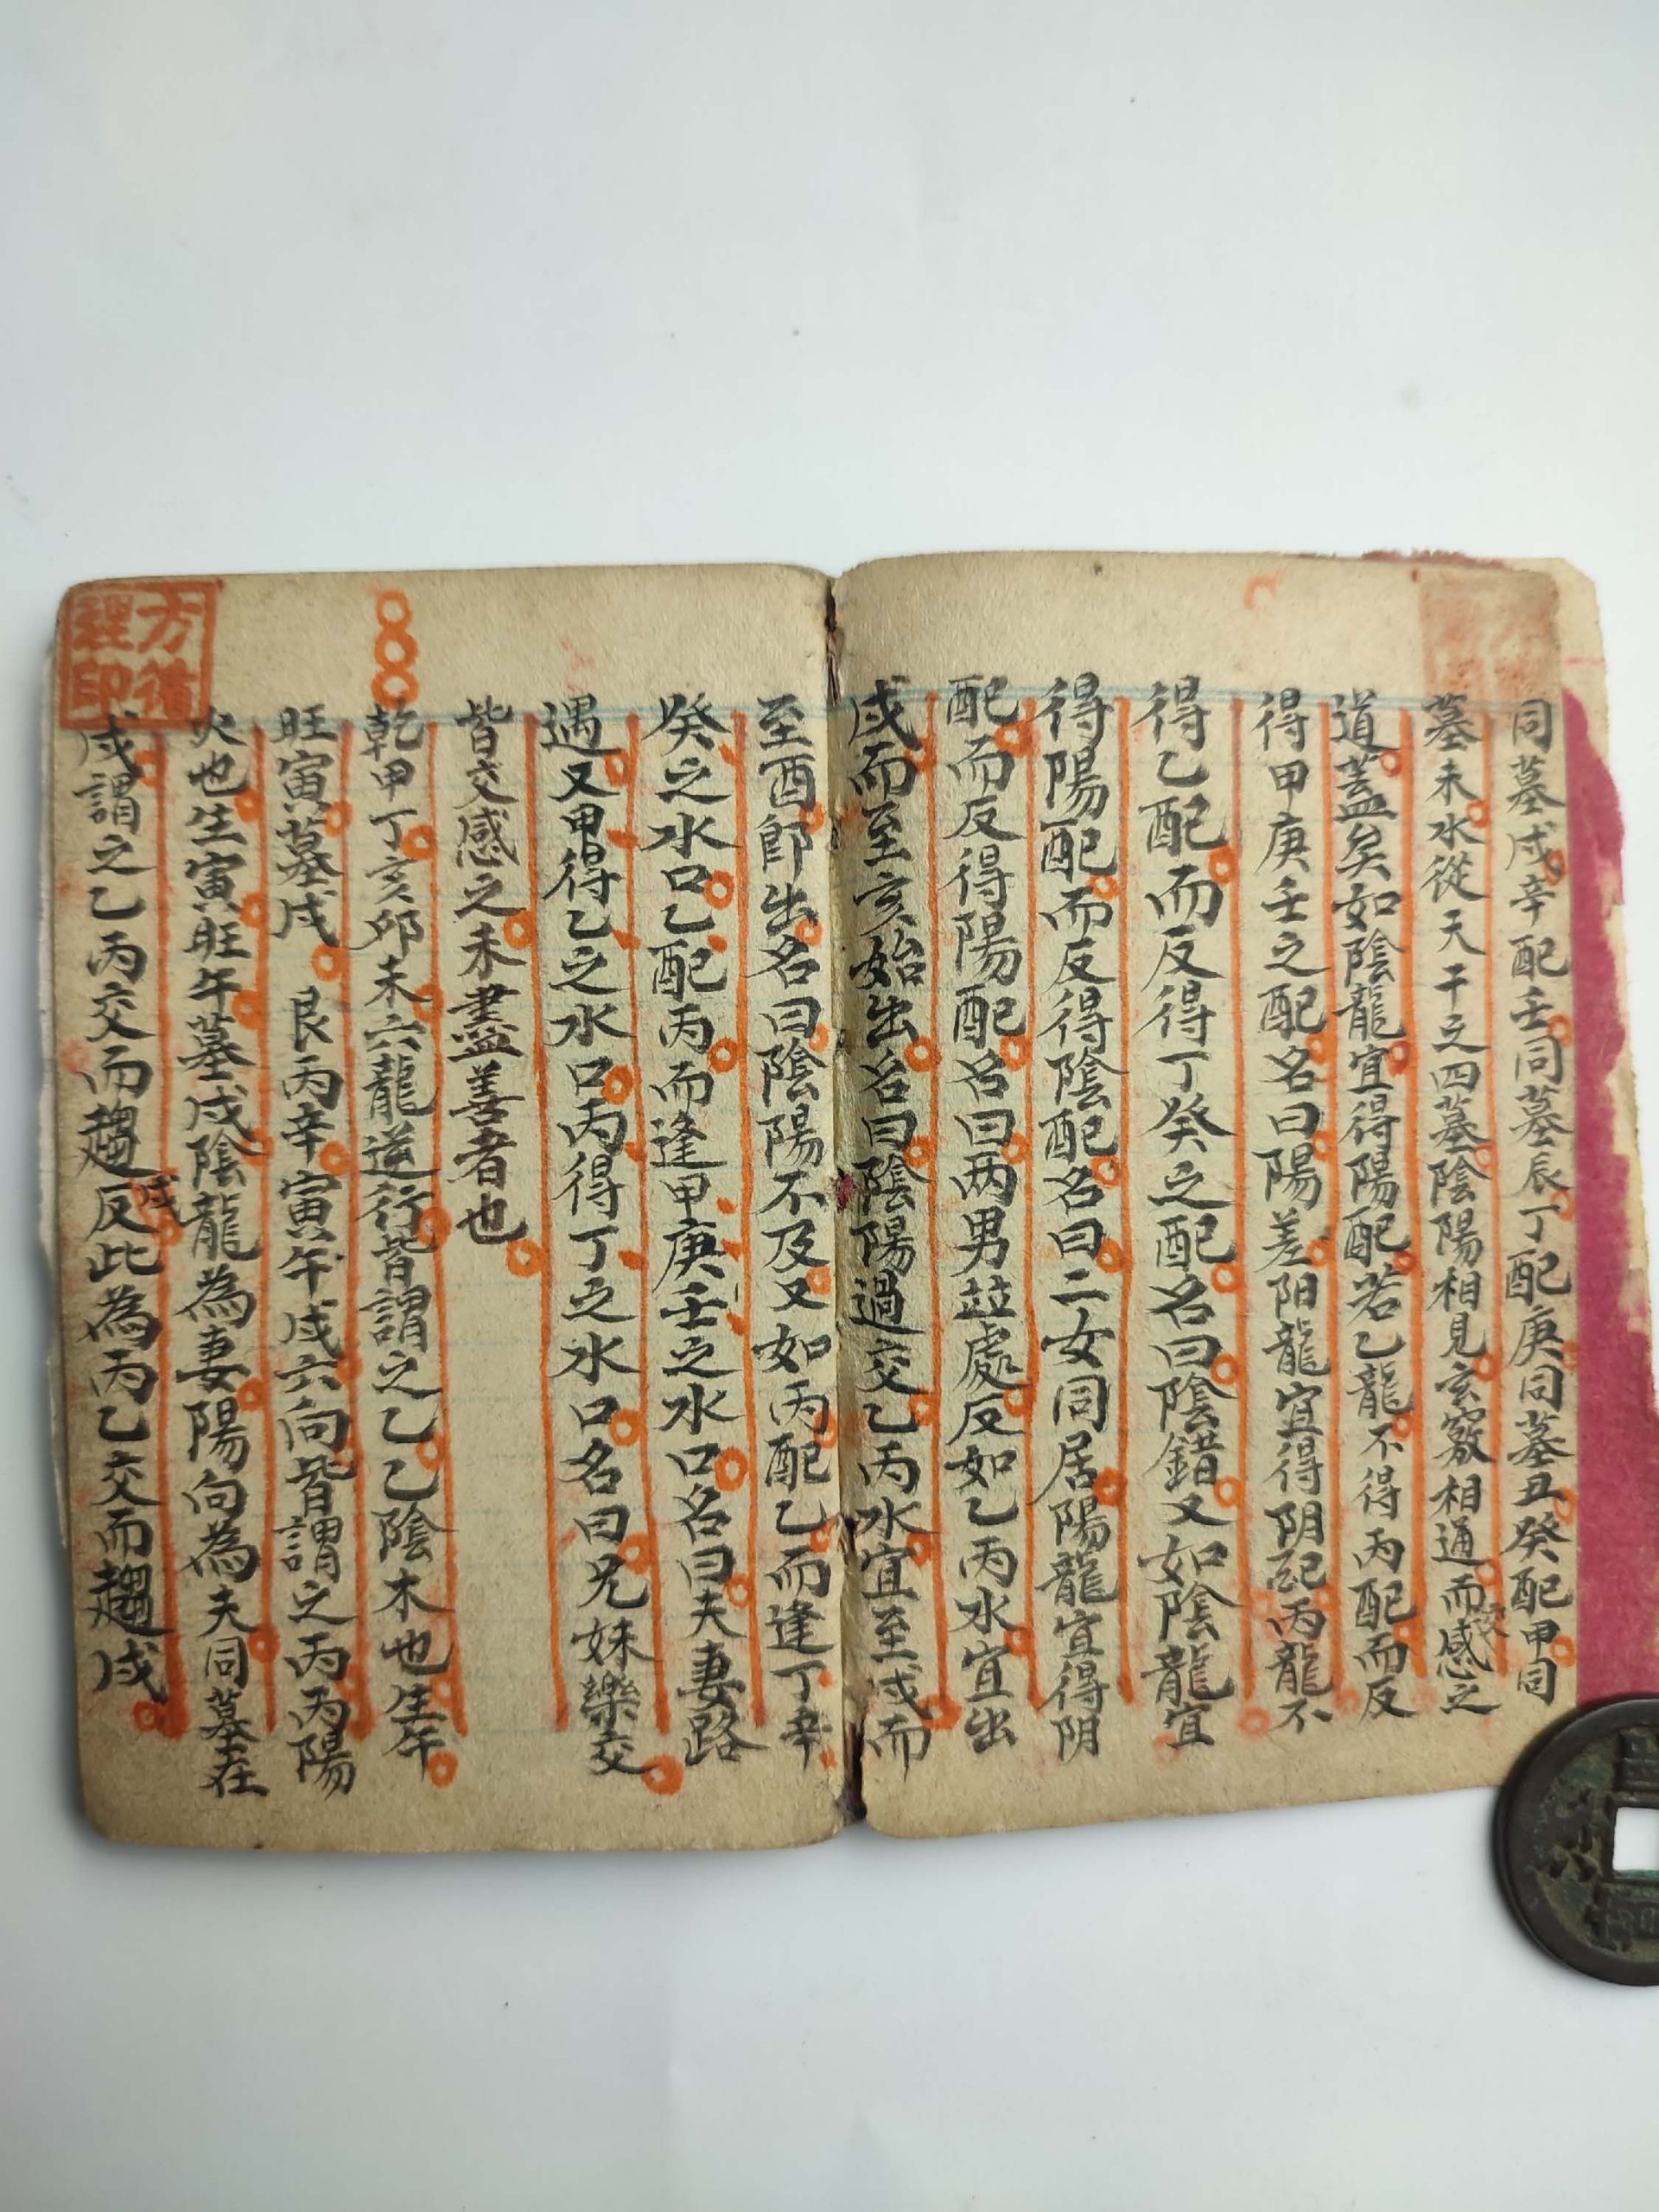 同墓戌辛配壬同墓辰丁配庚同墓丑癸配甲同
墓未水從天干之四墓陰陽相見玄竅相通而感之
道蓋矣如陰龍宜得陽配若乙龍不得丙配而反
得甲庚壬之配名曰陽差阳龍宜得阴配丙龍不
得乙配而反得丁癸之配名曰陰錯又如陰龍宜
得陽配而反得陰配名曰二女同居陽龍宜得阴
配而反得陽配名曰两男並處反如乙丙水宜出
戌而至亥始出名曰陰陽過交乙丙水宜至戌而
至酉即出名曰陰陽不及又如丙配乙而逢丁辛
癸之水口乙配丙而逢甲庚壬之水口名曰夫妻路
遇又甲得乙之水口丙得丁之水口名曰兄妹樂交
皆交感之未盡善者也
乾甲丁亥卯未六龍逆行皆謂之乙乙陰木也生午
旺寅墓戌 艮丙辛寅午戌六向皆謂之丙丙陽
火也生寅旺午墓戌陰龍為妻陽向為夫同墓在
戌謂之乙丙交而趨戌反此為丙乙交而趨戌
方循
程印